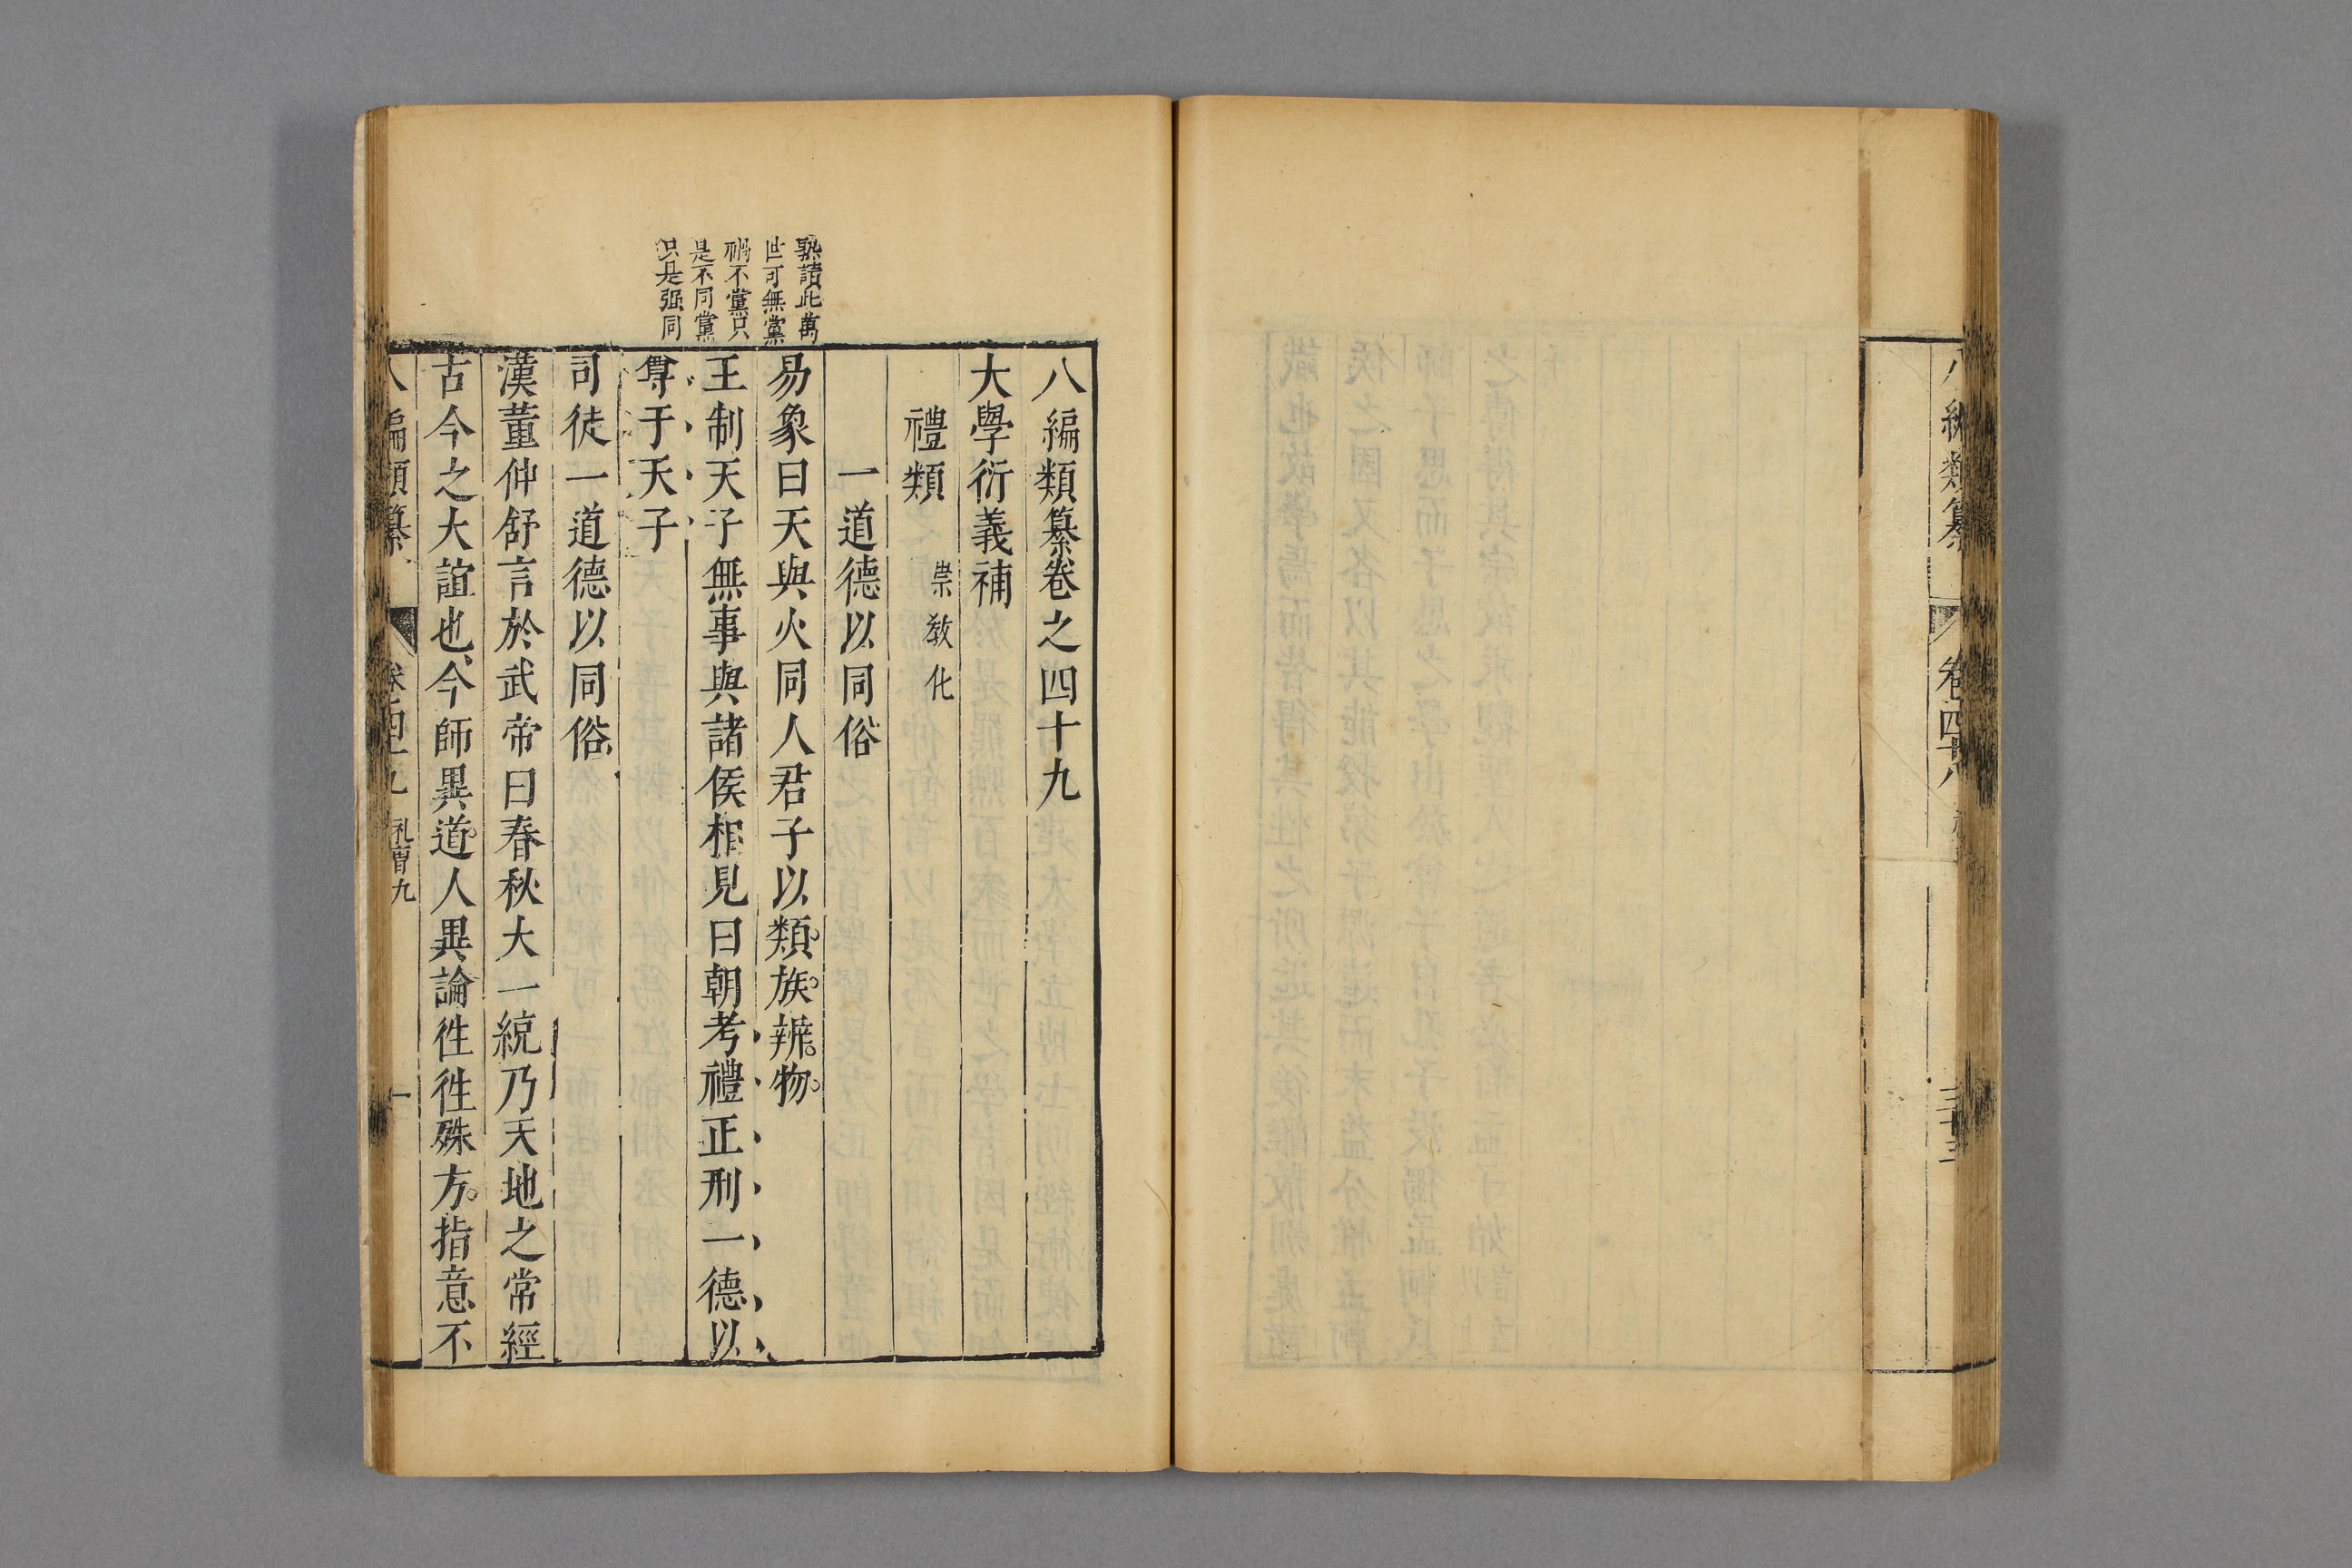 八編類纂
卷四十八
三十三
熟讀此萬
世可無黨
禍不黨只
是不同黨
只是强同
八編類纂卷之四十九
大學衍義補
禮類 崇教化
一道德以同俗
易象曰天與火同人君子以類族辨物
王制天子無事與諸侯相見曰朝考禮正刑一德以
尊于天子
司徒一道德以同俗
漢董仲舒言於武帝曰春秋大一統乃天地之常經
古今之大誼也今師異道人異論徃徃殊方指意不
八編類纂 卷四十九 礼曹九 一